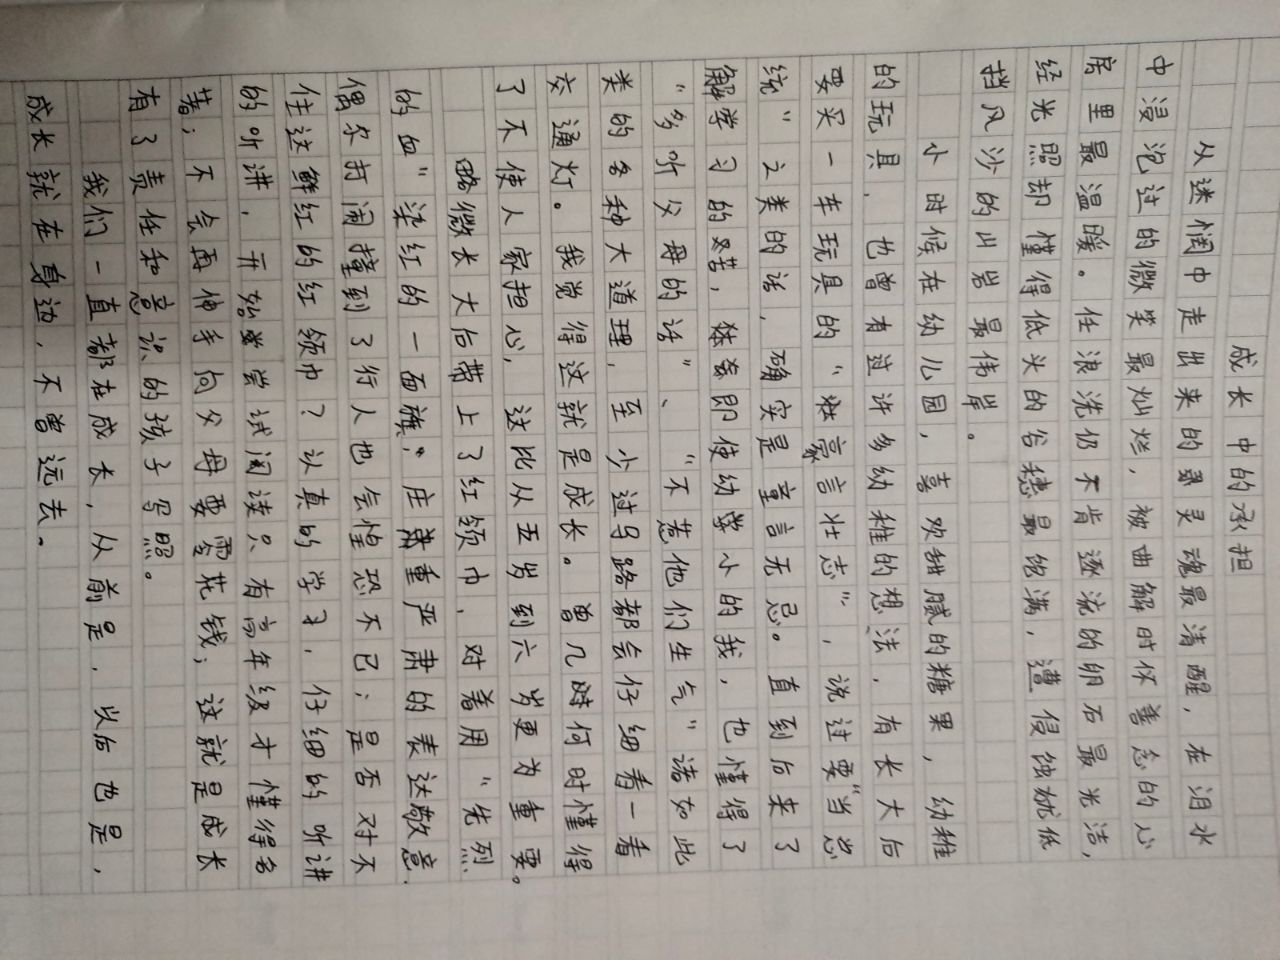 成长中的承担
从迷惘中走出来的灵魂最清醒，在泪水
中浸泡过的微笑最灿烂，被曲解时怀善念的心
房里最温暖。任浪洗仍不肯逐流的卵石最光洁，
经光照却懂得低头的谷穗最饱满，遭侵蚀犹低
挡风沙的山岩最伟岸。
小时候在幼儿园，喜欢甜腻的糖果，幼稚
的玩具，也曾有过许多幼稚的想法，有长大后
要买一车玩具的“豪言壮志”，说过要“当总
统”之类的话，确实是童言无忌。直到后来了
解学习的艰苦，即使幼小的我，也懂得了
“多听父母的话”、“不惹他们生气”诸如此
类的各种大道理，至少过马路都会仔细看一看
交通灯。我觉得这就是成长。曾几时何时懂得
了不使人家担心，这比从五岁到六岁更为重要。
略微长大后带上了红领巾，对着用“先烈
的血”染红的一面旗，庄重严肃的表达敬意，
偶尔打闹撞到了行人也会惶恐不已；是否对不
住这鲜红的红领巾？认真的学习，仔细的听讲
的听讲，开始尝试阅读只有高年级才懂得名
著；不会再伸手向父母要零花钱；这就是成长
有了责任和意识的孩子写照。
我们一直都在成长，从前是，以后也是，
成长就在身边，不曾远去。